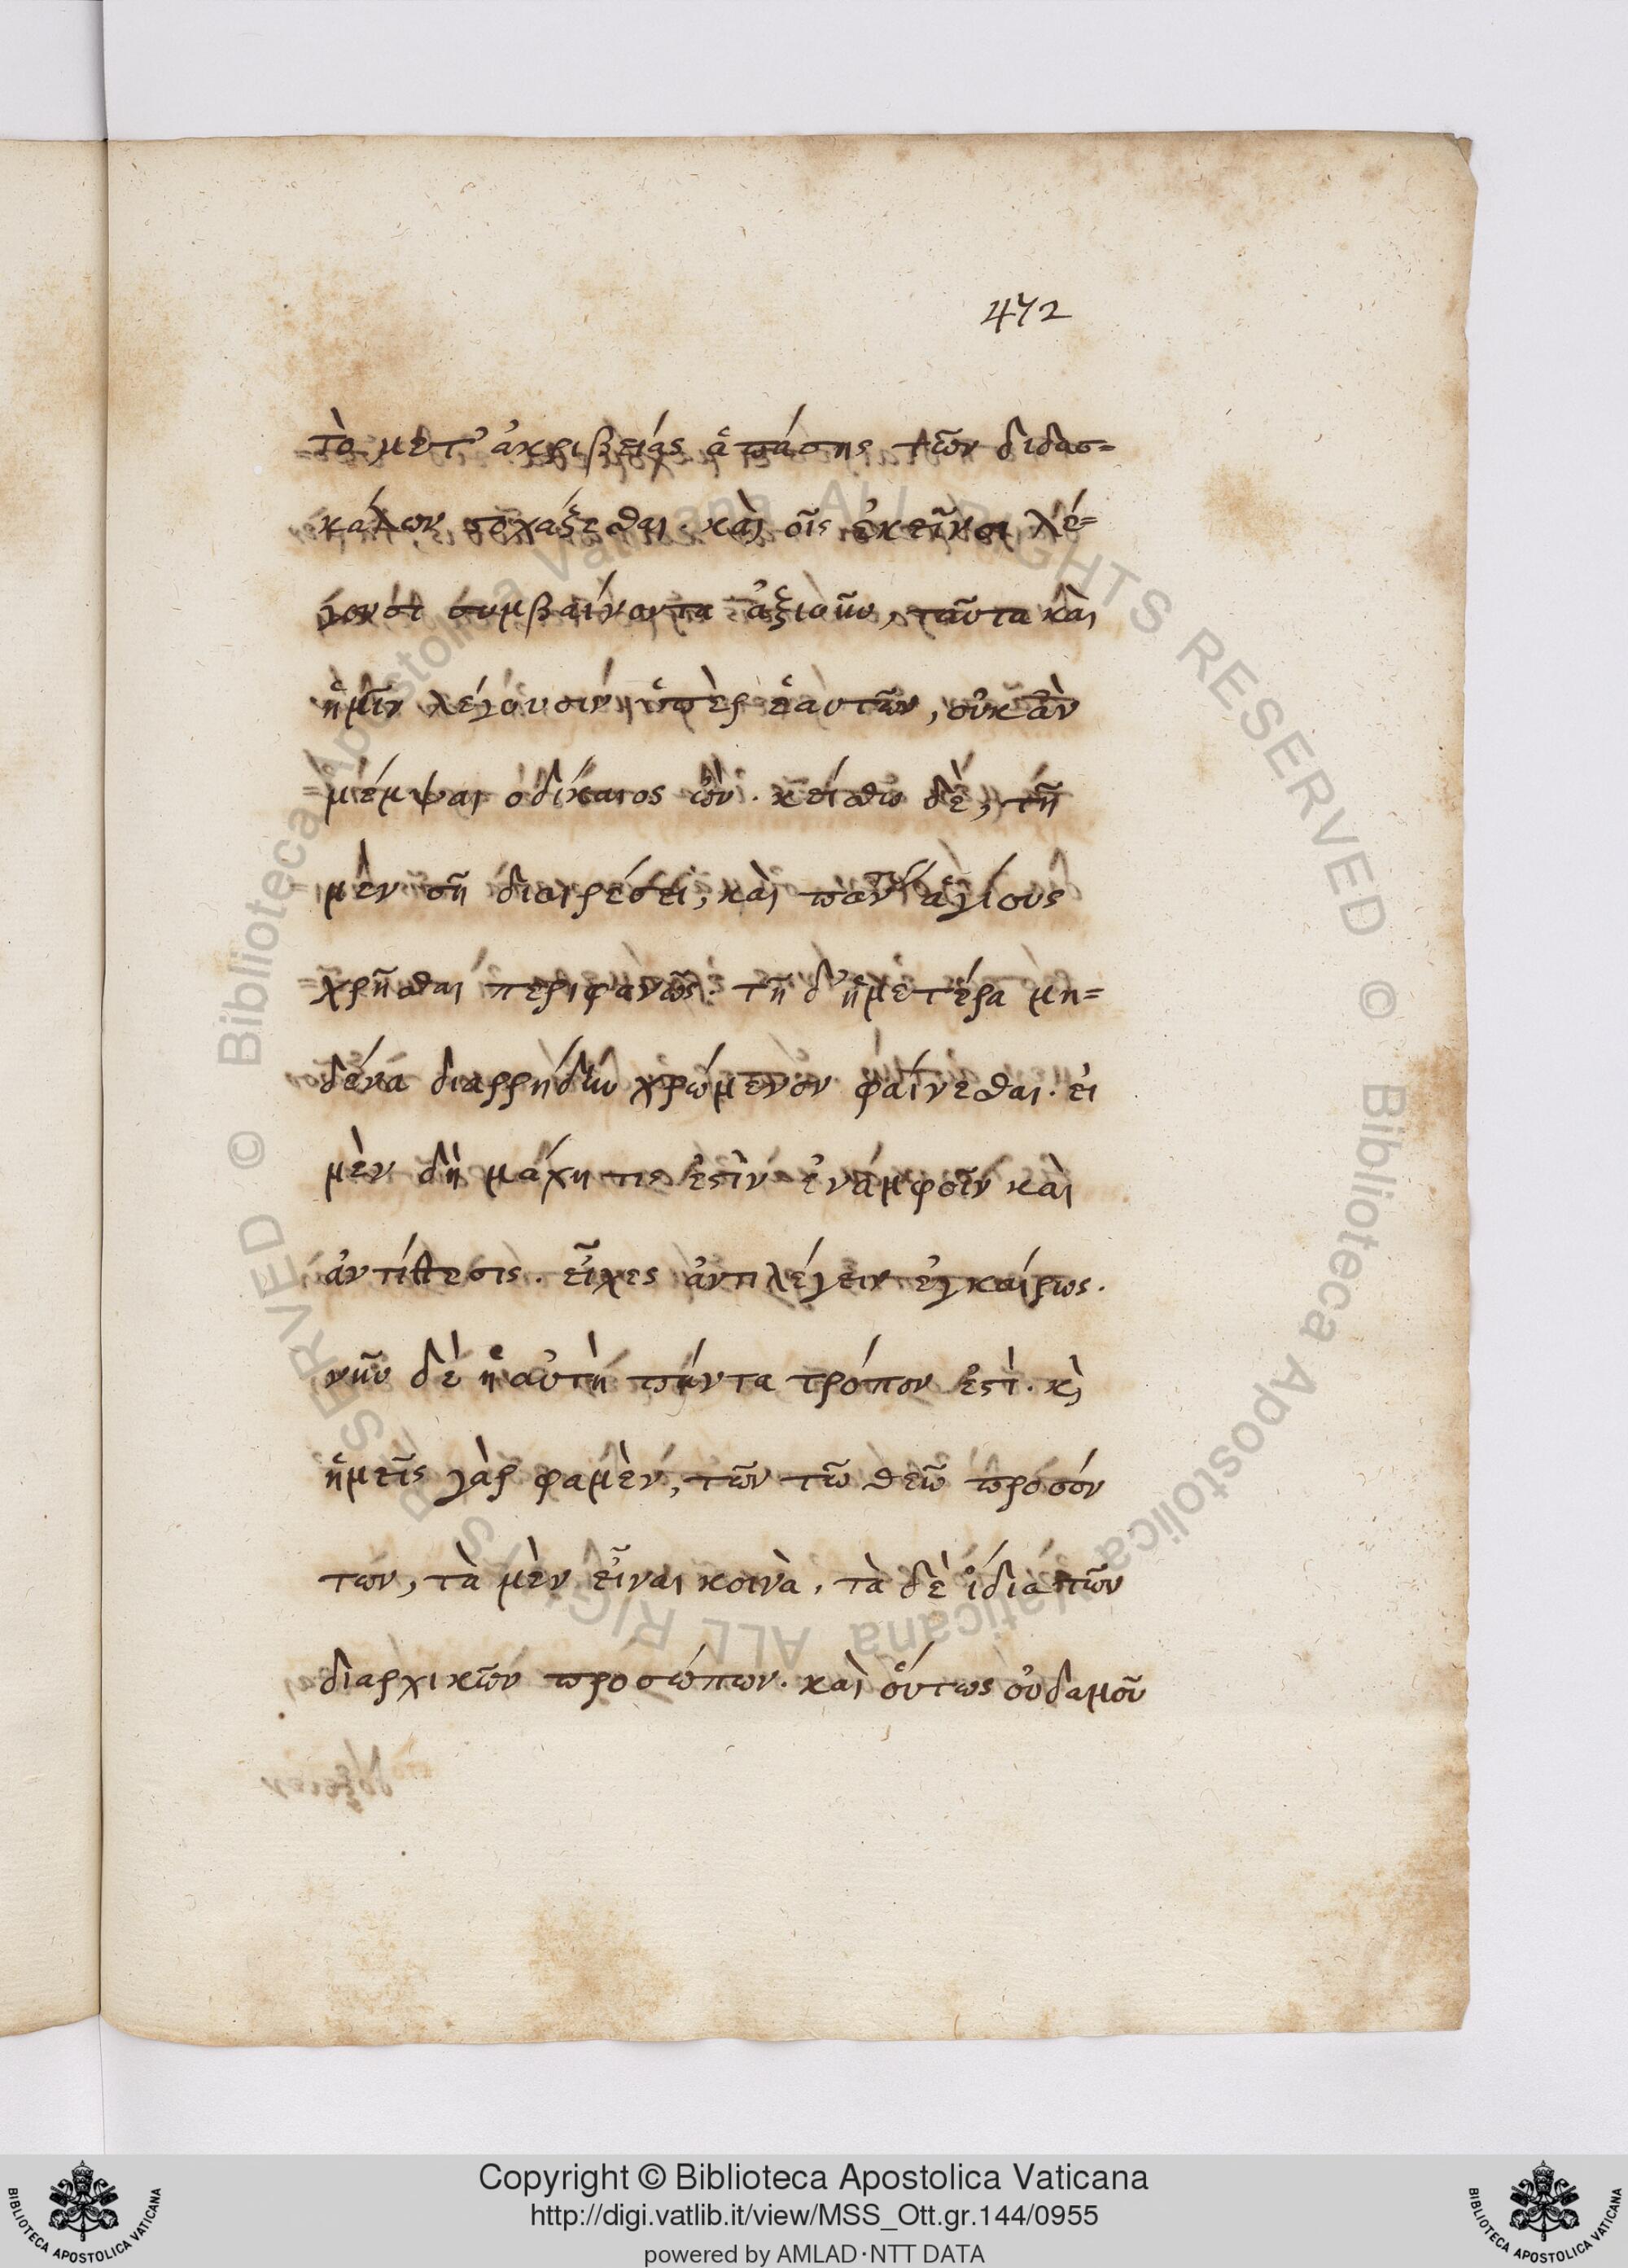 472
τὸ μετ' ἀκριβείας ἁπάσης τῶν διδασ=
κάλων στοχάζεσθαι. καὶ οἷς ἐκεῖνοι λέ=
γουσι συμβαίνοντα ἀξιοῦν, ταῦτα καὶ
ἡμῖν λέγουσιν ὑπὲρ ἑαυτῶν, οὐκ ἂν
μέμψαι ὁ δίκαιος ὤν. κείσθω δὲ, τῆ
μὲν σῆ διαιρέσει, καὶ πάντας ἁγίους
χρῆσθαι περιφανῶς. τῆ δ' ἡμετέρα μη=
δένα διαρρήδην χρώμενον φαίνεσθαι. εἰ
μὲν δὴ μάχη τις ἐστὶν ἐν ἀμφοῖν καὶ
ἀντίθεσις. εἶχες ἀντιλέγειν ἐγκαίρως.
νῦν δὲ ἡ αὐτὴ πάντα τρόπον ἐστὶ. κὶ
ἡμεῖς γὰρ φαμὲν, τῶν τῶ θεῶ προσόν
των, τὰ μὲν εἶναι κοινὰ, τὰ δὲ ἰδία τῶν
διαρχικῶν προσώπων. καὶ οὕτως οὐδαμοῦ
Copyright © Biblioteca Apostolica Vaticana
http://digi.vatlib.it/view/MSS_Ott.gr.144/0955
powered by AMLAD·NTT DATA
BIBLIOTECA APOSTOLICA VATICANA
BIBLIOTECA APOSTOLICA VATICANA